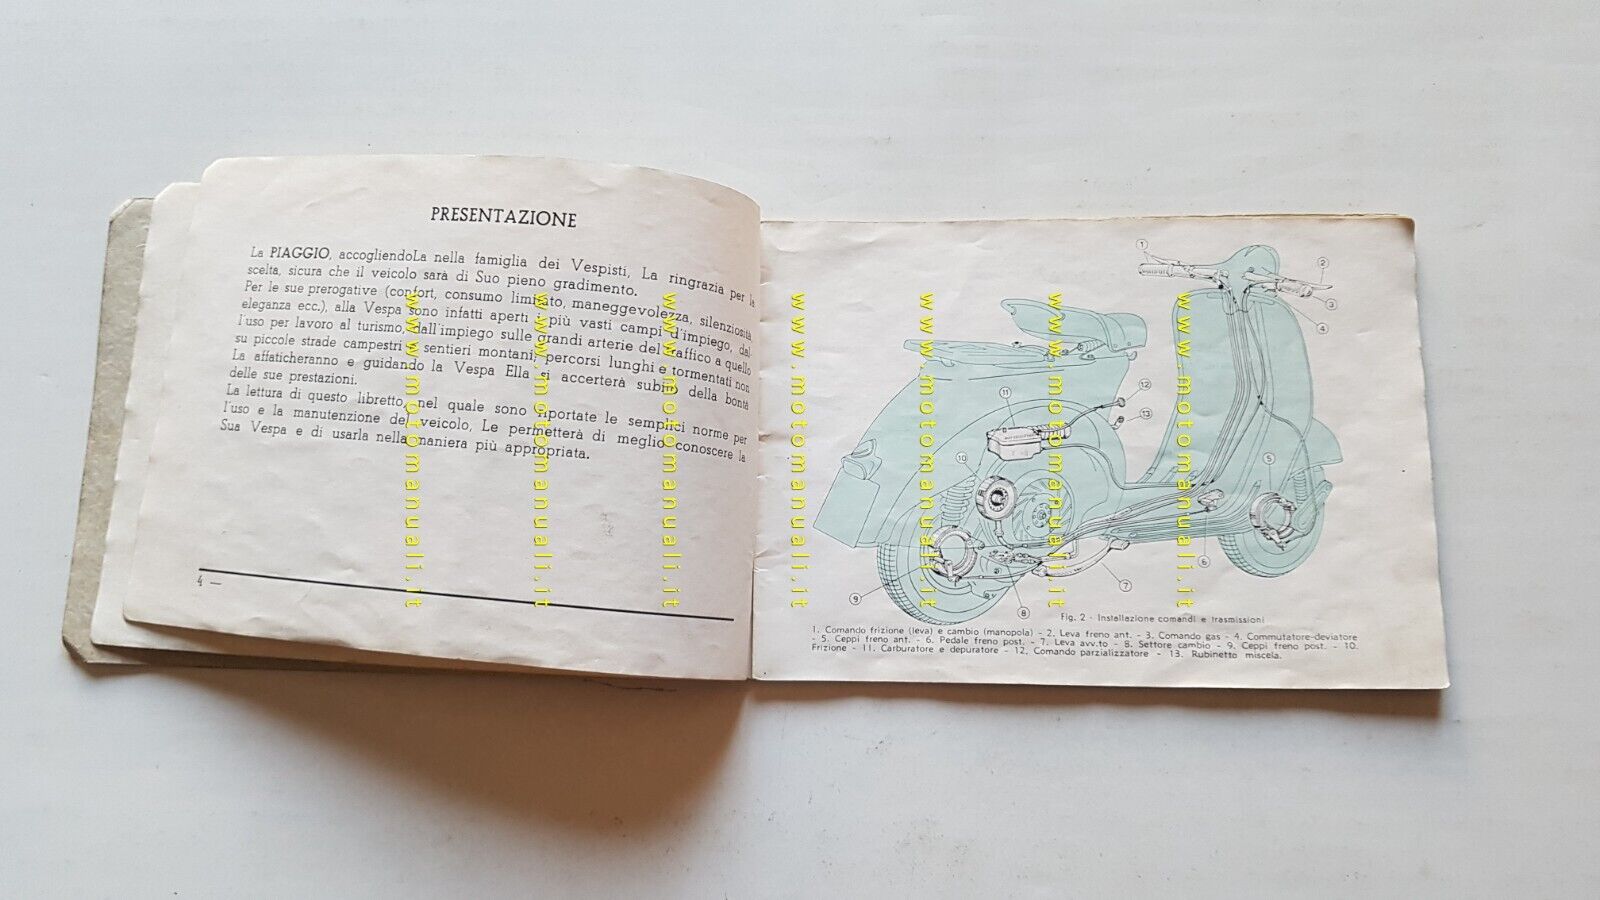 PRESENTAZIONE
La PIAGGIO, accogliendoLa nella famiglia dei Vespisti, La ringrazia per la
scelta, sicura che il veicolo sarà di Suo pieno gradimento.
Per le sue prerogative (confort, consumo limitato, maneggevolezza, silenziosità
eleganza ecc.), alla Vespa sono infatti aperti i più vasti campi d'impiego, dal
l'uso per lavoro al turismo, dall'impiego sulle grandi arterie del traffico a quello
su piccole strade campestri o sentieri montani; percorsi lunghi e tormentati non
La affaticheranno e guidando la Vespa Ella si accerterà subito della bontà
delle sue prestazioni.
La lettura di questo libretto, nel quale sono riportate le semplici norme per
l'uso e la manutenzione del veicolo, Le permetterà di meglio conoscere la
Sua Vespa e di usarla nella maniera più appropriata.
4 —
www.motomanuali.it
www.motomanuali.it
www.motomanuali.it
www.motomanuali.it
www.motomanuali.it
www.motomanuali.it
www.motomanuali.it
1
2
3
4
11
12
13
10
5
9
8
7
6
Fig. 2 - Installazione comandi e trasmissioni
1. Comando frizione (leva) e cambio (manopola) - 2. Leva freno ant. - 3. Comando gas - 4. Commutatore-deviatore
- 5. Ceppi freno ant. - 6. Pedale freno post. - 7. Leva avv.to - 8. Settore cambio - 9. Ceppi freno post. - 10.
Frizione - 11. Carburatore e depuratore - 12. Comando parzializzatore - 13. Rubinetto miscela.